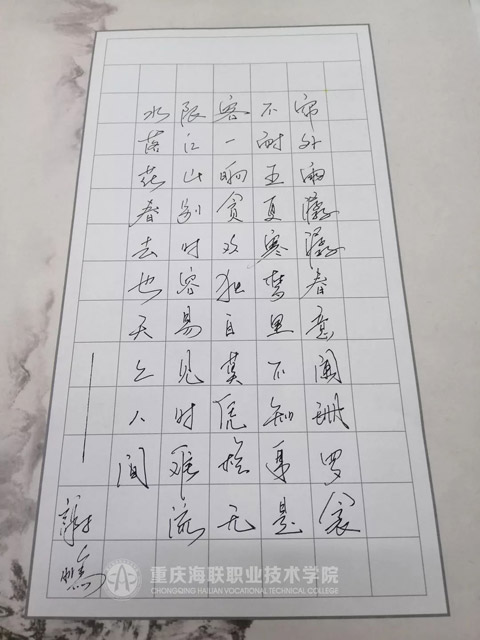 帘外雨潺潺春意阑珊罗衾
不耐五更寒梦里不知身是
客一晌贪欢独自莫凭栏无
限江山别时容易见时难流
水落花春去也天上人间
谢
重庆海联职业技术学院
CHONGQING HAILIAN VOCATIONAL TECHNICAL COLLEGE